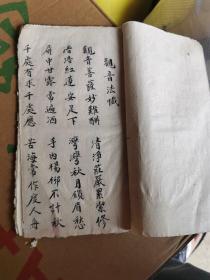 觀音法懺
觀音菩薩妙難酬 清淨莊嚴累劫修
浩浩紅蓮安足下 灣灣秋月鎖眉愁
瓶中甘露常遍洒 手內楊柳不計秋
千處有求千處應 苦海常作度人舟